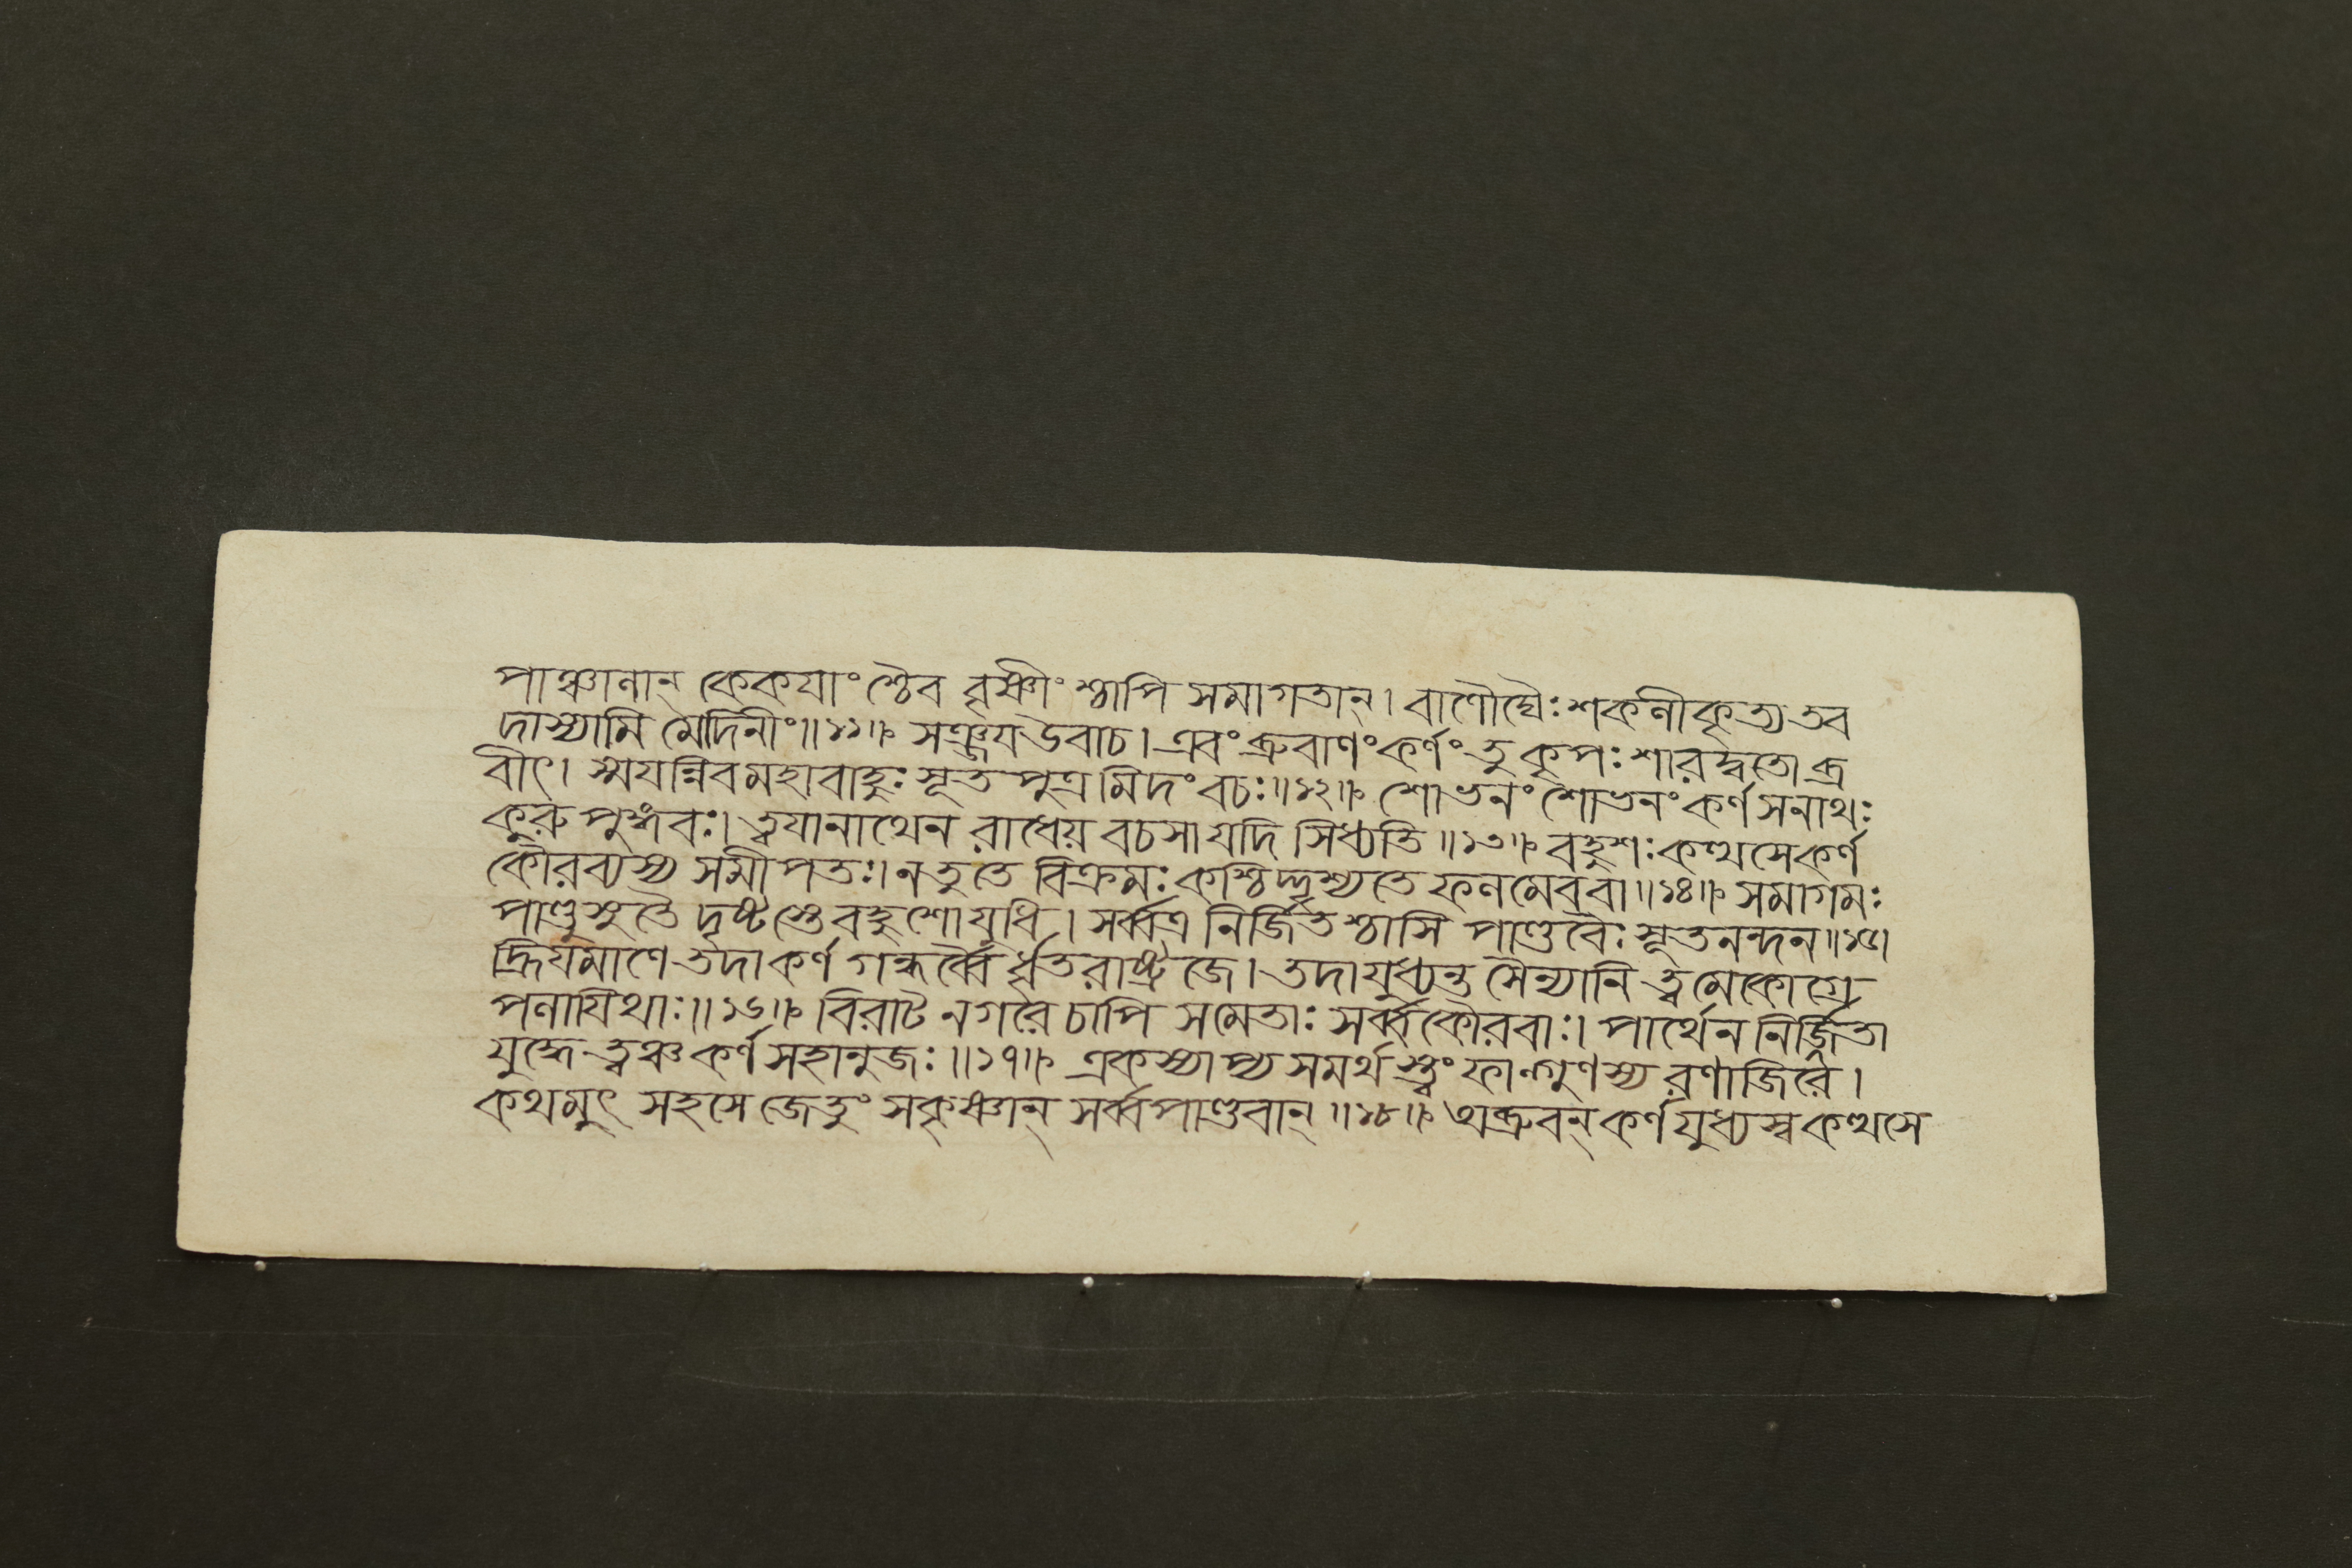 পাঞ্চালান্ কেকযাংশ্চৈব বৃষ্ণীংশ্চাপি সমাগতান্। বাণৌঘৈঃ শকলীকৃত্য তব
দাস্যামি মেদিনীং॥১১॥ সঞ্জয উবাচ। এবং ব্রুবাণং কর্ণং তু কৃপঃ শারদ্বতোব্র
বীৎ। স্ময়ন্নিব মহাবাহুঃ সূত পুত্রমিদং বচঃ॥১২॥ শোভনং শোভনং কর্ণ সনাথঃ
কুরু পুঙ্গবঃ। ত্বযা নাথেন রাধেয় বচসা যদি সিধ্যতি॥১৩॥ বহুশঃ কত্থসে কর্ণ
কৌরব্যস্য সমীপতঃ। ন তু তে বিক্রমঃ কশ্চিদ্দৃশ্যতে ফলমেব বা॥১৪॥ সমাগমঃ
পাণ্ডুসুতৈ দৃষ্টস্তে বহুশো যুধি। সর্ব্বত্র নির্জিতশ্চাসি পাণ্ডবৈঃ সূতনন্দন॥১৫।
হ্রিযমাণে তদা কর্ণ গন্ধর্ব্বৈর্ধৃতরাষ্ট্রজে। তদাযুধ্যন্ত সৈন্যানি ত্বমেকোগ্রে
পলাযিথাঃ॥১৬॥ বিরাট নগরে চাপি সমেতাঃ সর্ব্বকৌরবাঃ। পার্থেন নির্জিতা
যুদ্ধে ত্বঞ্চ কর্ণ সহানুজঃ॥১৭॥ একস্যাপ্য সমর্থস্ত্বং ফাল্গুণস্য রণাজিরে।
কথমুৎ সহসে জেতুং সকৃষ্ণান্ সর্ব্বপাণ্ডবান্॥১৮॥ অব্রুবন্ কর্ণ যুধ্যস্ব কত্থসে